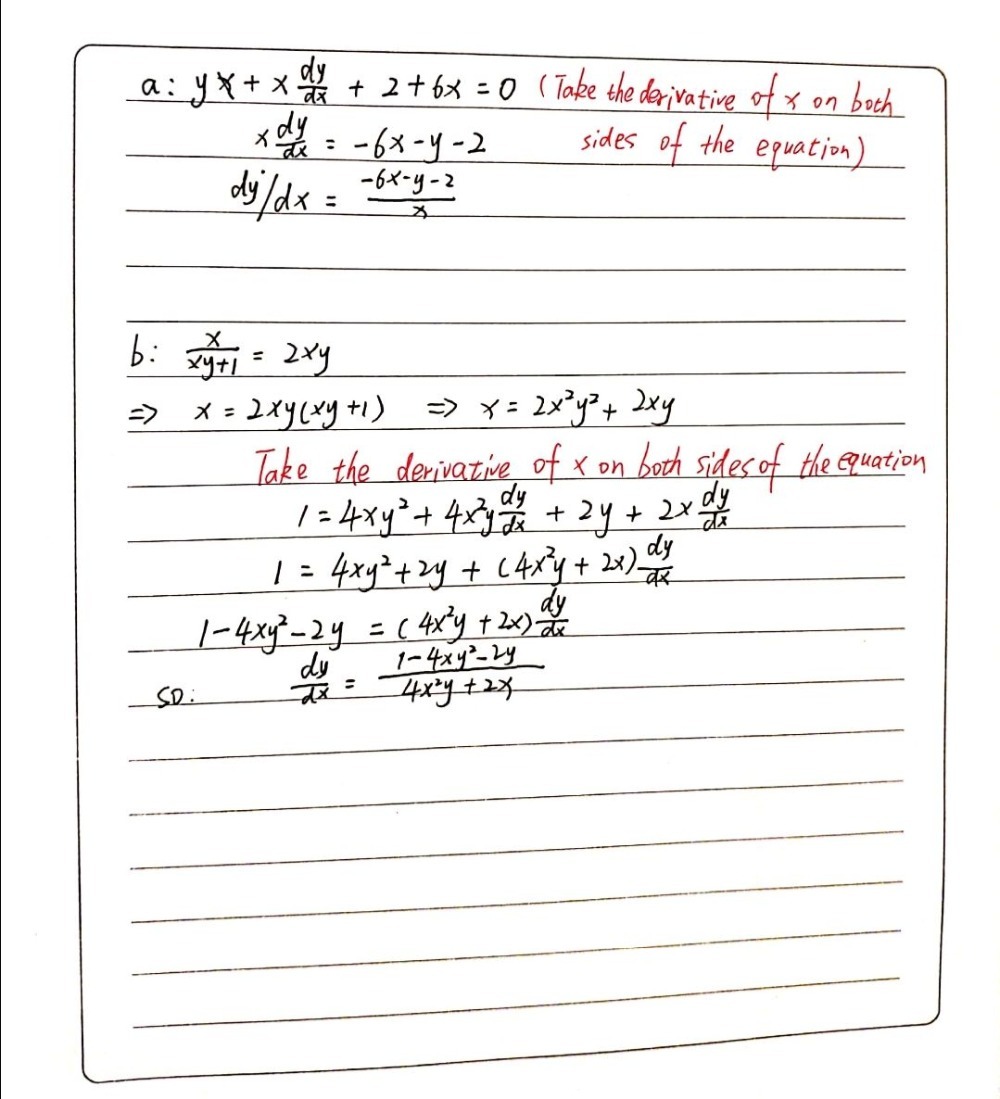 a: y + x dy/dx + 2 + 6x = 0 (Take the derivative of x on both
x dy/dx = -6x - y - 2 sides of the equation)
dy/dx = (-6x - y - 2)/x
b: x/(xy+1) = 2xy
=> x = 2xy(xy+1) => x = 2x²y² + 2xy
Take the derivative of x on both sides of the equation
1 = 4xy² + 4x²y dy/dx + 2y + 2x dy/dx
1 = 4xy² + 2y + (4x²y + 2x) dy/dx
1 - 4xy² - 2y = (4x²y + 2x) dy/dx
so: dy/dx = (1 - 4xy² - 2y)/(4x²y + 2x)